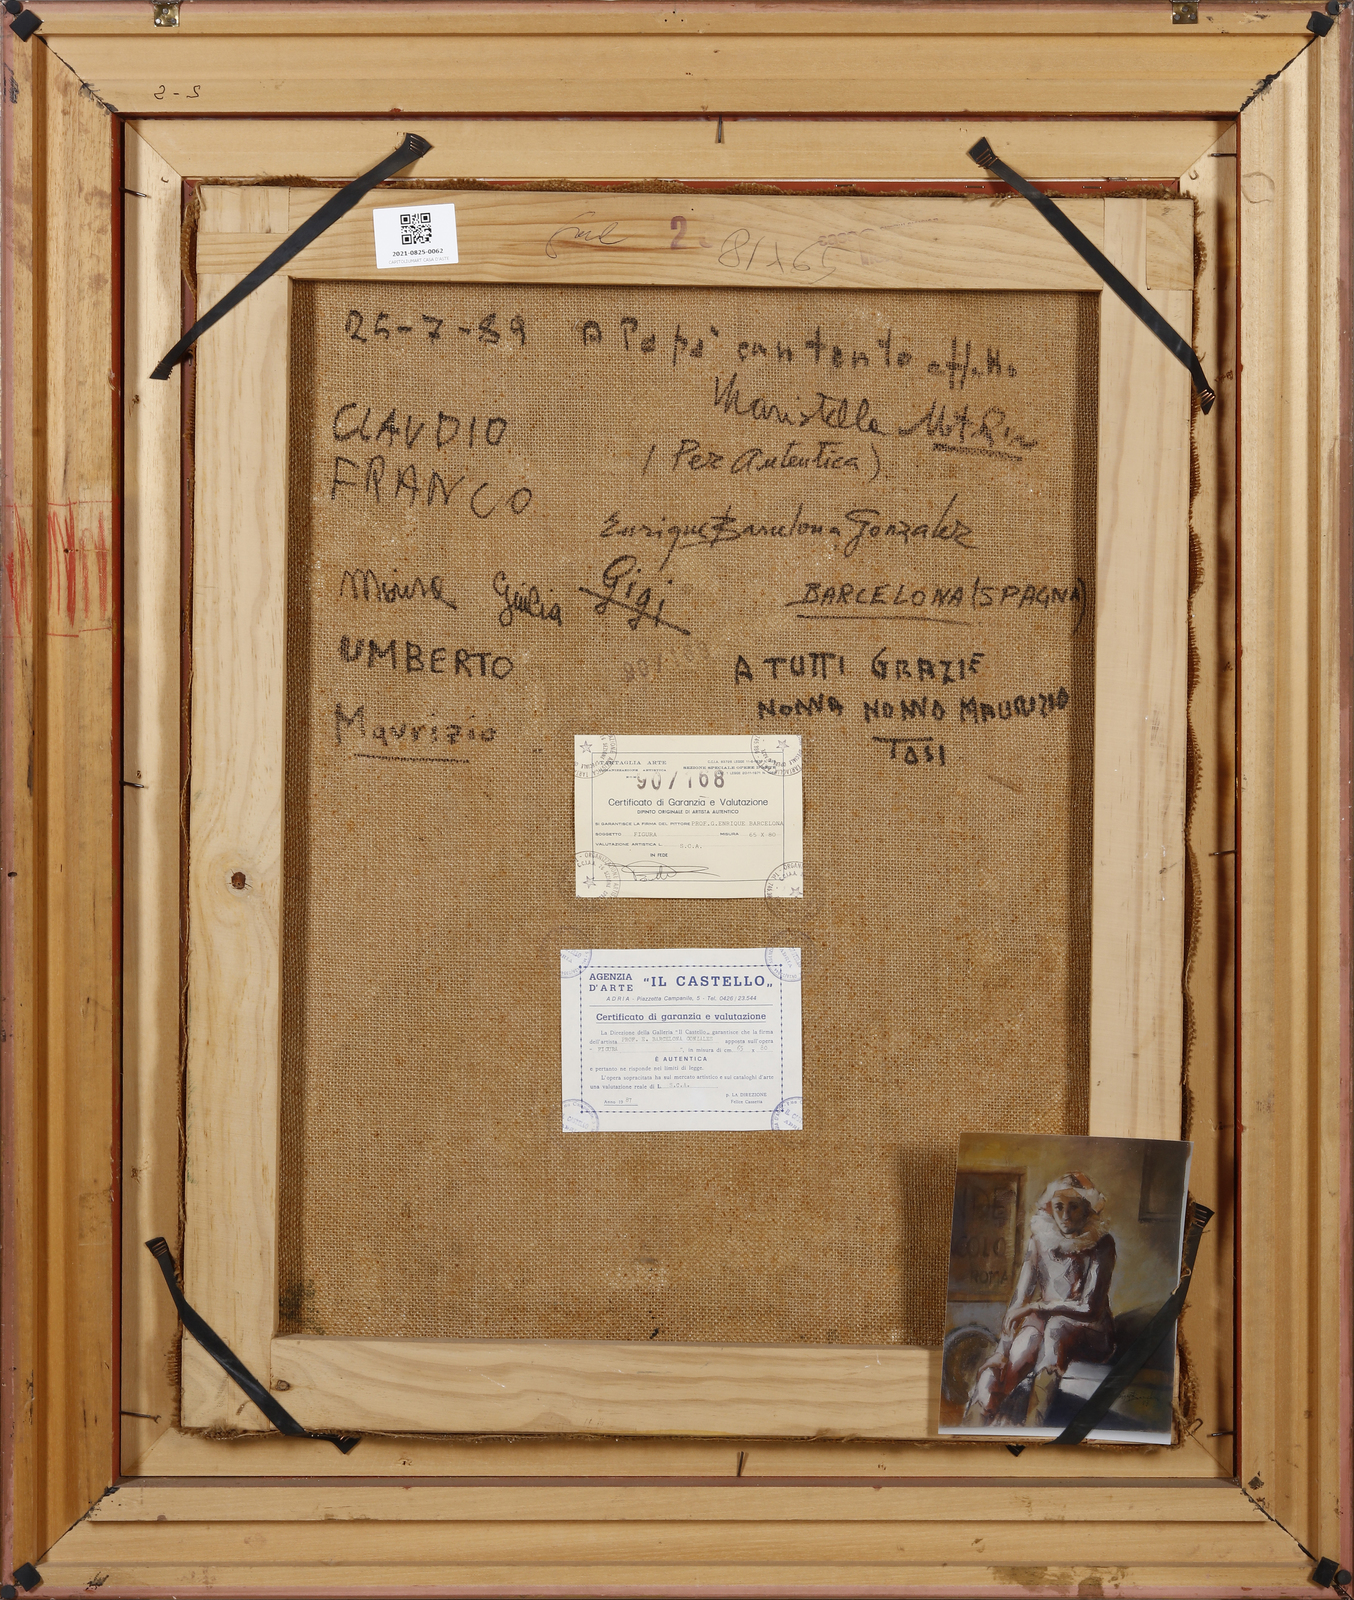 2-2
2021-0825-0062
2
81x65
25-7-89 A Papà con tanto affetto
Maristella
(Per Autentica)
CLAUDIO
FRANCO
Enrique Barcelona Gonzalez
Giulia Gigi
BARCELONA (SPAGNA)
UMBERTO
A TUTTI GRAZIE
NONNA NONNO MAURIZIO
TOSI
Maurizio
90/168
Certificato di Garanzia e Valutazione
DIPINTO ORIGINALE DI ARTISTA AUTENTICO
SI GARANTISCE LA FIRMA DEL PITTORE PROF.G.ENRIQUE BARCELONA
SOGGETTO FIGURA MISURA 65 X 80
VALUTAZIONE ARTISTICA L. S.C.A.
IN FEDE
AGENZIA D'ARTE "IL CASTELLO„
ADRIA - Piazzetta Campanile, 5 - Tel. 0426 / 23.544
Certificato di garanzia e valutazione
La Direzione della Galleria "Il Castello„ garantisce che la firma
dell'artista PROF. E. BARCELONA GONZALES apposta sull'opera
- FIGURA -, in misura di cm.
È AUTENTICA
e pertanto ne risponde nei limiti di legge.
L'opera sopracitata ha sul mercato artistico e sui cataloghi d'arte
una valutazione reale di L. S.C.A.
p. LA DIREZIONE
Anno 19
ROMA